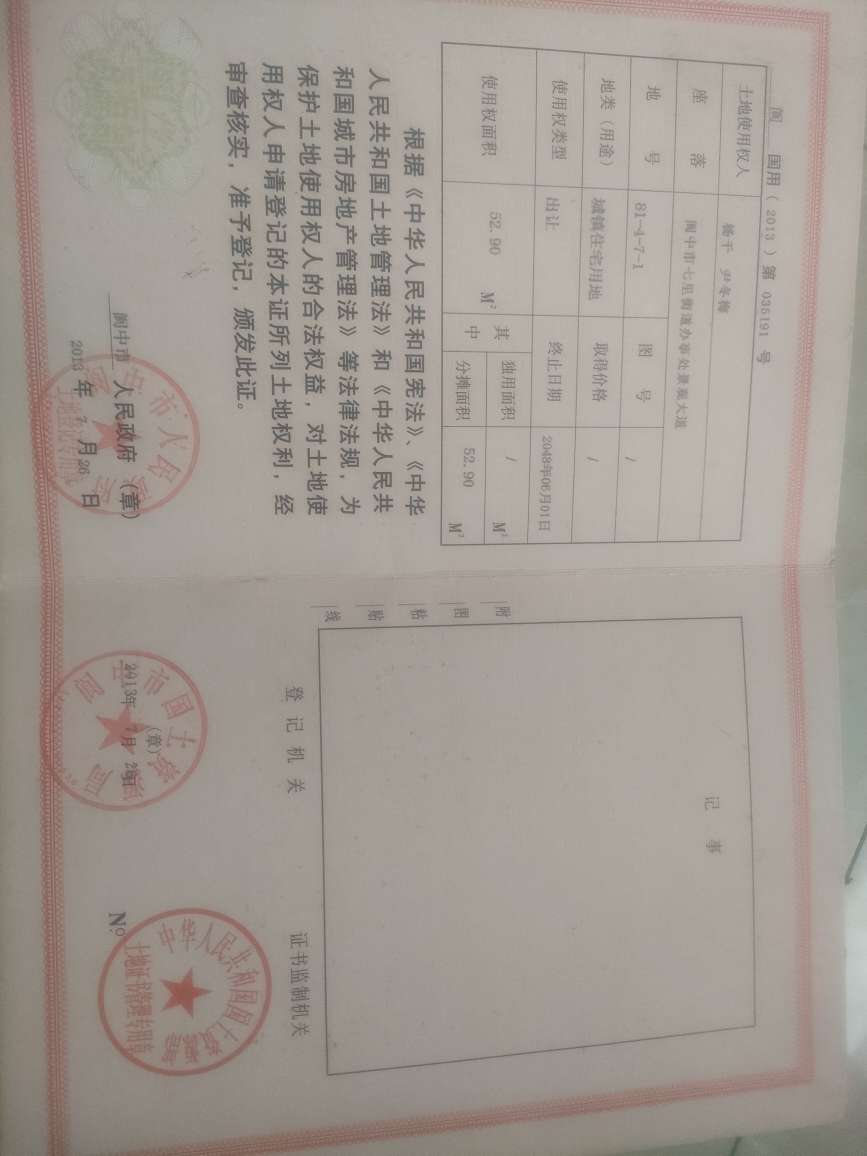 阆 国用（2013）第 035191 号
土地使用权人 杨千 尹冬梅
座 落 阆中市七里街道办事处景观大道
地 号 81-4-7-1 图 号 /
地类（用途） 城镇住宅用地 取得价格 /
使用权类型 出让 终止日期 2048年06月01日
使用权面积 52.90 M² 其中 独用面积 / M²
分摊面积 52.90 M²
根据《中华人民共和国宪法》、《中华
人民共和国土地管理法》和《中华人民共
和国城市房地产管理法》等法律法规，为
保护土地使用权人的合法权益，对土地使
用权人申请登记的本证所列土地权利，经
审查核实，准予登记，颁发此证。
阆中市 人民政府（章）
2013 年 7 月 26 日
阆中市人民政府
土地登记专用章
记 事
附 图 粘 贴 线
登 记 机 关
（章）
2013年 7月 26日
证书监制机关
中华人民共和国国土资源部
土地证书管理专用章
Nº